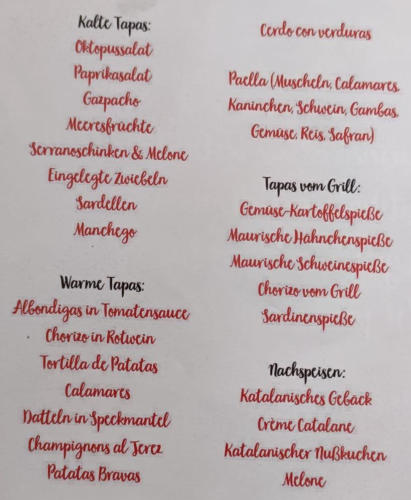 Kalte Tapas:
Oktopussalat
Paprikasalat
Gazpacho
Meeresfrüchte
Serranoschinken & Melone
Eingelegte Zwiebeln
Sardellen
Manchego
Warme Tapas:
Albondigas in Tomatensauce
Chorizo in Rotwein
Tortilla de Patatas
Calamares
Datteln in Speckmantel
Champignons al Jerez
Patatas Bravas
Cerdo con verduras
Paella (Muscheln, Calamares,
Kaninchen, Schwein, Gambas,
Gemüse, Reis, Safran)
Tapas vom Grill:
Gemüse-Kartoffelspieße
Maurische Hähnchenspieße
Maurische Schweinespieße
Chorizo vom Grill
Sardinenspieße
Nachspeisen:
Katalanisches Gebäck
Crème Catalane
Katalanischer Nußkuchen
Melone